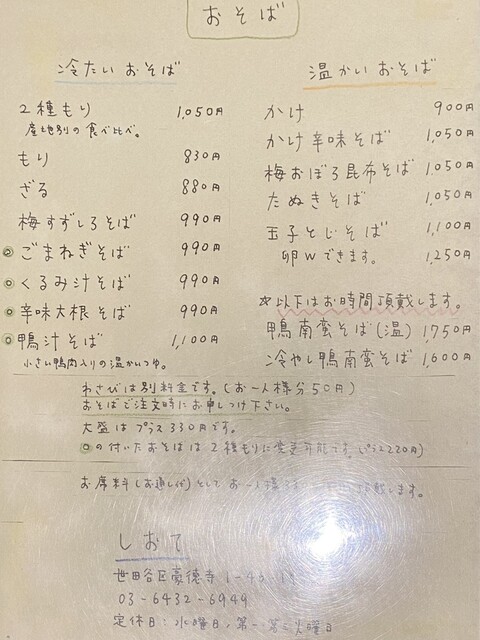 おそば
冷たいおそば
2種もり 1,050円
産地別の食べ比べ。
もり 830円
ざる 880円
梅すずしろそば 990円
◎ごまねぎそば 990円
◎くるみ汁そば 990円
◎辛味大根そば 990円
◎鴨汁そば 1,100円
小さい鴨肉入りの温かいつゆ。
温かいおそば
かけ 900円
かけ辛味そば 1,050円
梅おぼろ昆布そば 1,050円
たぬきそば 1,050円
玉子とじそば 1,100円
卵Wできます。 1,250円
☆以下はお時間頂戴します。
鴨南蛮そば(温) 1,750円
冷やし鴨南蛮そば 1,600円
わさびは別料金です。(お一人様分50円)
おそばご注文時にお申しつけ下さい。
大盛はプラス330円です。
◎の付いたおそばは2種もりに変更可能です。(プラス220円)
お席料(お通し代)としてお一人様 頂戴します。
しおて
世田谷区豪徳寺1-4
03-6432-6949
定休日:水曜日、第一・第三火曜日